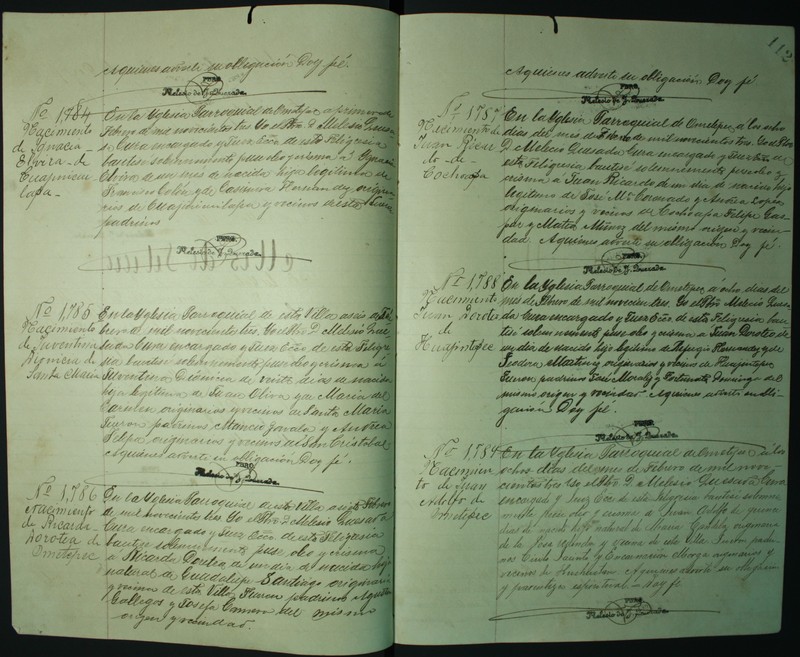 Aquienes advertí su obligación Doy fé.
PBRO.
Melesio de J. Quesada.
Nº 1,784
Nacimiento
de Ignacia
Elvira de
Cuajinicui
lapa
En la Yglesia Parroquial de Ometepec, a primero de
Febrero de mil novecientos tres. Yo el Pbro. D. Melesio Quesa
da Cura encargado y Juez Ecco de esta Feligresia
bauticé solemnemente puse oleo y crisma á Ignacia
Elvira de un mes de nacida hija legitima de
Francisco Colon y de Casimira Hernandez origina
rios de Cuajinicuilapa y vecinos de esta
padrinos
PBRO.
Melesio de J. Quesada.
Nº 1,785
Nacimiento
de Juventina
Dionicia de
Santa Maria
En la Yglesia Parroquial de esta Villa a seis de Fe
brero de mil novecientos tres. Yo el Pbro D. Melesio Que
sada Cura encargado y Juez Ecco de esta Feligre
sia bauticé solemnemente puse oleo y crisma á
Juventina Dionicia de veinte dias de nacida
hija legitima de Juan Oliva y de Maria del
Carmen originarios y vecinos de Santa Maria
Fueron padrinos Mancio Zavala y Andrea
Felipa originarios y vecinos de San Cristobal
Aquienes advertí su obligación Doy fé.
PBRO.
Melesio de J. Quesada.
Nº 1,786
Nacimiento
de Ricarda
Dorotea de
Ometepec
En la Yglesia Parroquial de esta Villa a siete Febrero
de mil novecientos tres. Yo el Pbro D. Melesio Quesada
Cura encargado y Juez Ecco de esta Feligresia
bauticé solemnemente puse oleo y crisma
á Ricarda Dorotea de un dia de nacida hija
natural de Guadalupe Santiago originaria
y vecina de esta Villa, Fueron padrinos
Gallegos y Josefa del mismo
origen y vecindad.
112
Aquienes advertí su obligación Doy fé
PBRO.
Melesio de J. Quesada.
Nº 1,787
Nacimiento de
Juan Ricar
do de
Cochoapa
En la Yglesia Parroquial de Ometepec, a los ocho
dias del mes de Febrero de mil novecientos tres. Yo el Pbro
D. Melesio Quesada Cura encargado y Juez Ecco de
esta Feligresia bauticé solemnemente puse oleo y
crisma á Juan Ricardo de un dia de nacido hijo
legitimo de José Mª Coronado y Andrea Lopez
originarios y vecinos de Cochoapa Felipe Gas
par y Matea Muñoz del mismo origen y vecin
dad Aquienes advertí su obligación Doy fé.
PBRO.
Melesio de J. Quesada.
Nº 1,788
Nacimiento
Juan Dorote
de
Huajintepec
En la Yglesia Parroquial de Ometepec, á ocho dias del
mes de Febrero de mil novecientos tres. Yo el Pbro Melesio Quesa
da Cura encargado y Juez Ecco de esta Feligresia bau
ticé solemnemente puse oleo y crisma á Juan Doroteo de
un dia de nacido hijo legitimo de Hernandez y de
Teodora Martinez originarios y vecinos de Huajintepec
Fueron padrinos José Morales y Fortunata Domingo del
mismo origen y vecindad Aquienes advertí su obli
gación Doy fé.
PBRO.
Melesio de J. Quesada.
Nº 1,784
Nacimien
to de Juan
Adolfo de
Ometepec
En la Yglesia Parroquial de Ometepec, á los
ocho dias del mes de Febrero de mil nove
cientos tres. Yo el Pbro. D. Melesio Quesada Cura
encargado y Juez Ecco de esta Feligresia bauticé solemne
mente puse oleo y crisma á Juan Adolfo de quince
dias de nacido hijo natural de Maria originaria
de y vecina de esta Villa Fueron padri
nos y Encarnación originarios y
vecinos de Aquienes advertí su obligación
y parentesco espiritual Doy fé
PBRO.
Melesio de J. Quesada.